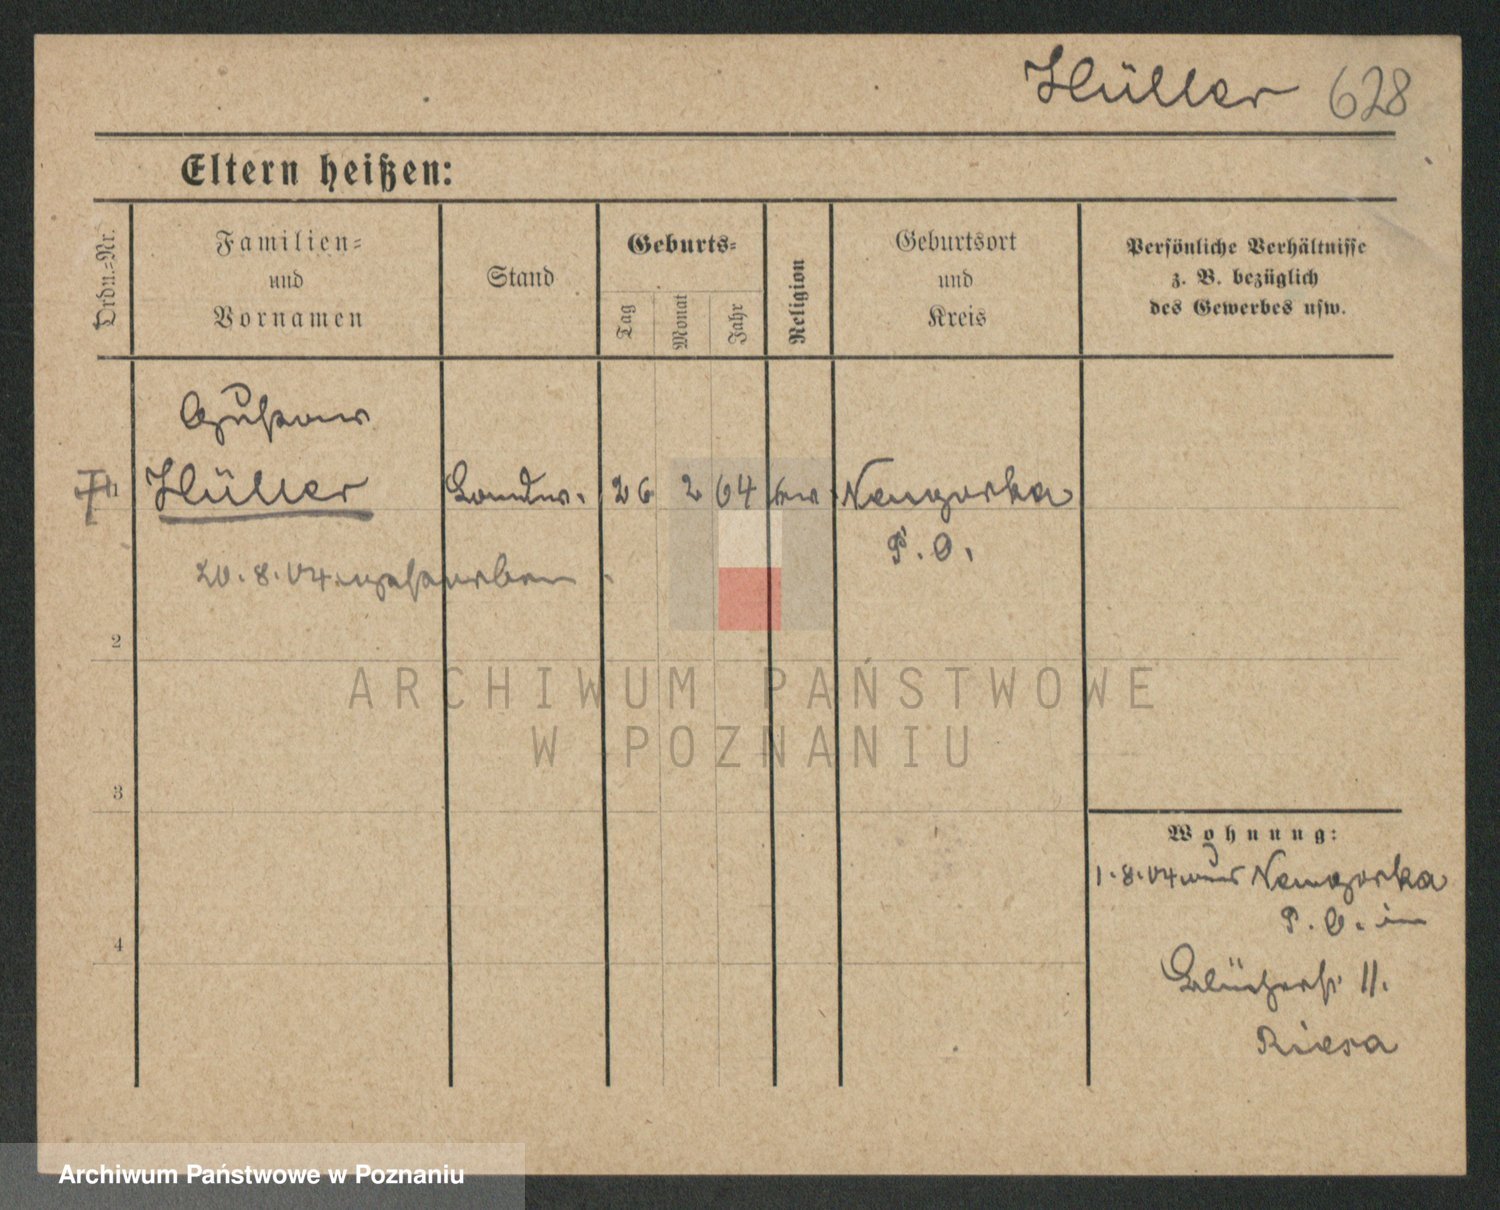 Hüller 628
Eltern heißen:
Ordn.=Nr.
Familien=
und
Vornamen
Stand
Geburts=
Tag
Monat
Jahr
Religion
Geburtsort
und
Kreis
Persönliche Verhältnisse
z. B. bezüglich
des Gewerbes usw.
Gustav
1 Hüller 26 2 64 ev Neugorka
P. O.
20. 8. 04. gestorben
2
3
4
ARCHIWUM PAŃSTWOWE
W POZNANIU
Wohnung:
1. 8. 04 Neugorka
P. O. in
Blücherstr. 11.
Riesa
Archiwum Państwowe w Poznaniu